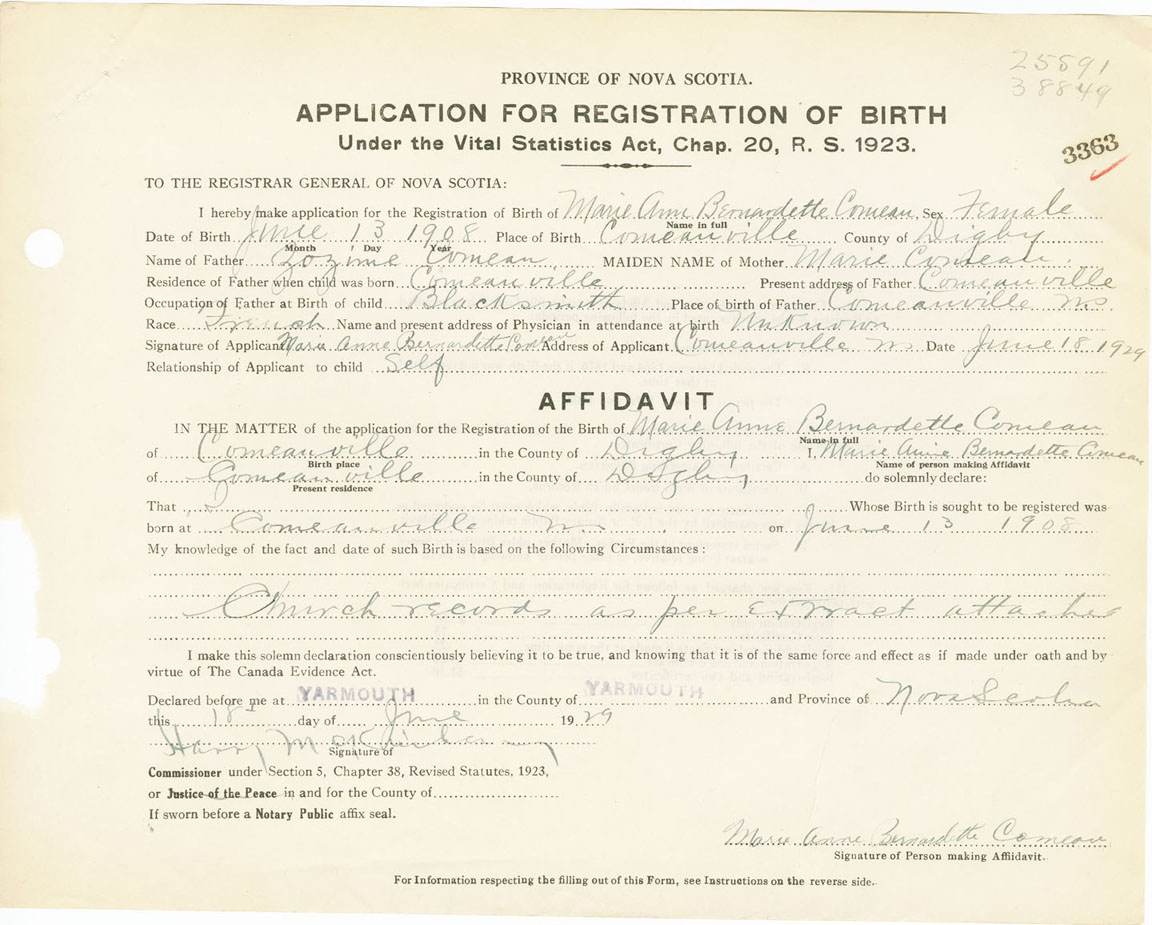 25591
38849
PROVINCE OF NOVA SCOTIA.
APPLICATION FOR REGISTRATION OF BIRTH
Under the Vital Statistics Act, Chap. 20, R. S. 1923.
3363
TO THE REGISTRAR GENERAL OF NOVA SCOTIA:
I hereby make application for the Registration of Birth of Marie Anne Bernardette Comeau Sex Female
Name in full
Date of Birth June 13 1908 Place of Birth Comeauville County of Digby
Month Day Year
Name of Father Zozime Comeau MAIDEN NAME of Mother Marie Comeau.
Residence of Father when child was born Comeauville Present address of Father Comeauville
Occupation of Father at Birth of child Blacksmith Place of birth of Father Comeauville N.S.
Race French Name and present address of Physician in attendance at birth Unknown
Signature of Applicant Marie Anne Bernardette Comeau Address of Applicant Comeauville Date June 18 1929
Relationship of Applicant to child Self
AFFIDAVIT
IN THE MATTER of the application for the Registration of the Birth of Marie Anne Bernardette Comeau
Name in full
of Comeauville in the County of Digby I, Marie Anne Bernardette Comeau
Birth place Name of person making Affidavit
of Comeauville in the County of Digby do solemnly declare:
Present residence
That I Whose Birth is sought to be registered was
born at Comeauville on June 13 1908
My knowledge of the fact and date of such Birth is based on the following Circumstances:
Church records as per extract attached
I make this solemn declaration conscientiously believing it to be true, and knowing that it is of the same force and effect as if made under oath and by
virtue of The Canada Evidence Act.
Declared before me at YARMOUTH in the County of YARMOUTH and Province of Nova Scotia
this 18 day of June 1929
Harry
Signature of
Commissioner under Section 5, Chapter 38, Revised Statutes, 1923,
or Justice of the Peace in and for the County of
If sworn before a Notary Public affix seal.
Marie Anne Bernardette Comeau
Signature of Person making Affidavit.
For Information respecting the filling out of this Form, see Instructions on the reverse side.